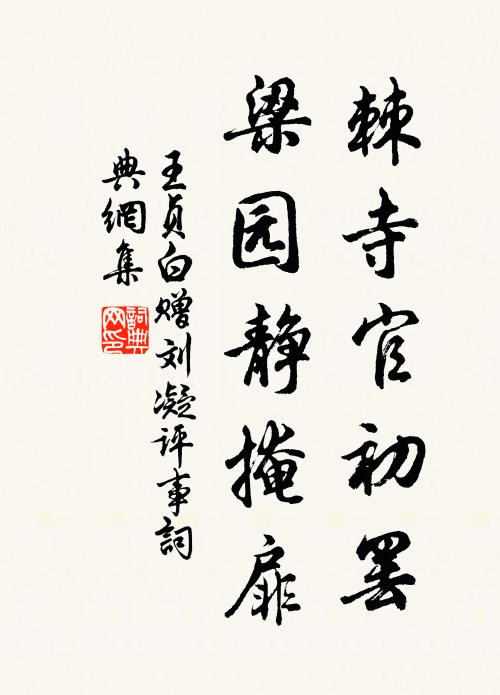 棘寺官初罢
梁园静掩扉
王贞白赠刘凝评事詞
典網集
詞典
网印